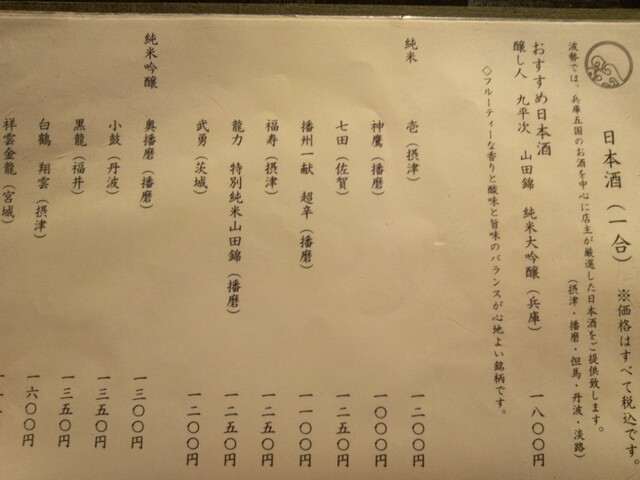 日本酒（一合） ※価格はすべて税込です。
波勢では、兵庫五国のお酒を中心に店主が厳選した日本酒をご提供致します。
（摂津・播磨・但馬・丹波・淡路）
おすすめ日本酒
醸し人 九平次 山田錦 純米大吟醸（兵庫） 一八〇〇円
◇フルーティーな香りと酸味と旨味のバランスが心地よい銘柄です。
純米
壱（摂津） 一二〇〇円
神鷹（播磨） 一〇〇〇円
七田（佐賀） 一二五〇円
播州一献 超辛（播磨） 一一〇〇円
福寿（摂津） 一二五〇円
龍力 特別純米山田錦（播磨） 一二五〇円
武勇（茨城） 一二〇〇円
純米吟醸
奥播磨（播磨） 一三〇〇円
小鼓（丹波） 一三五〇円
黒龍（福井） 一三五〇円
白鶴 翔雲（摂津） 一六〇〇円
祥雲金龍（宮城）